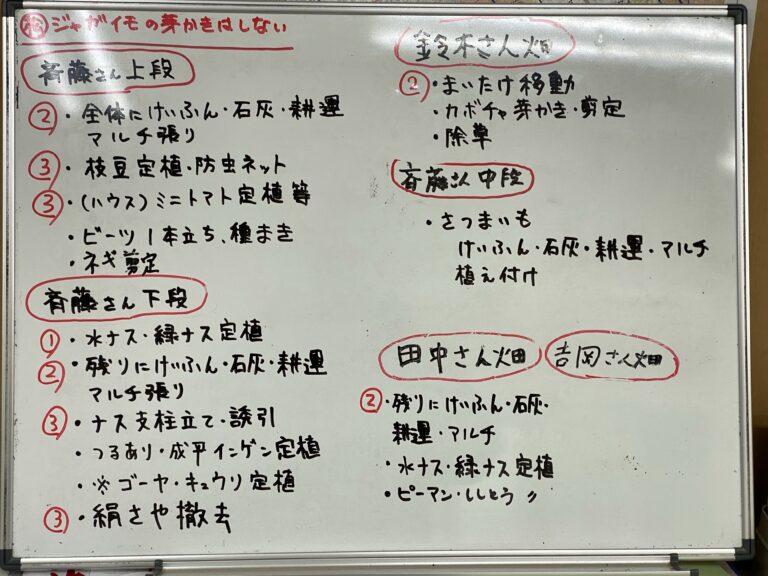 ジャガイモの芽かきはしない
斉藤さん上段
②・全体にけいふん・石灰・耕運
マルチ張り
③・枝豆定植・防虫ネット
③・(ハウス)ミニトマト定植等
・ビーツ1本立ち、種まき
・ネギ剪定
斉藤さん下段
①・水ナス・緑ナス定植
②・残りにけいふん・石灰・耕運
マルチ張り
③・ナス支柱立て・誘引
・つるあり・成平インゲン定植
・※ゴーヤ・キュウリ定植
③・絹さや撤去
鈴木さん畑
②・まいたけ移動
・カボチャ芽かき・剪定
・除草
斉藤さん中段
・さつまいも
けいふん・石灰・耕運・マルチ
植え付け
田中さん畑 吉岡さん畑
②・残りにけいふん・石灰・
耕運・マルチ
・水ナス・緑ナス定植
・ピーマン・ししとう 〃